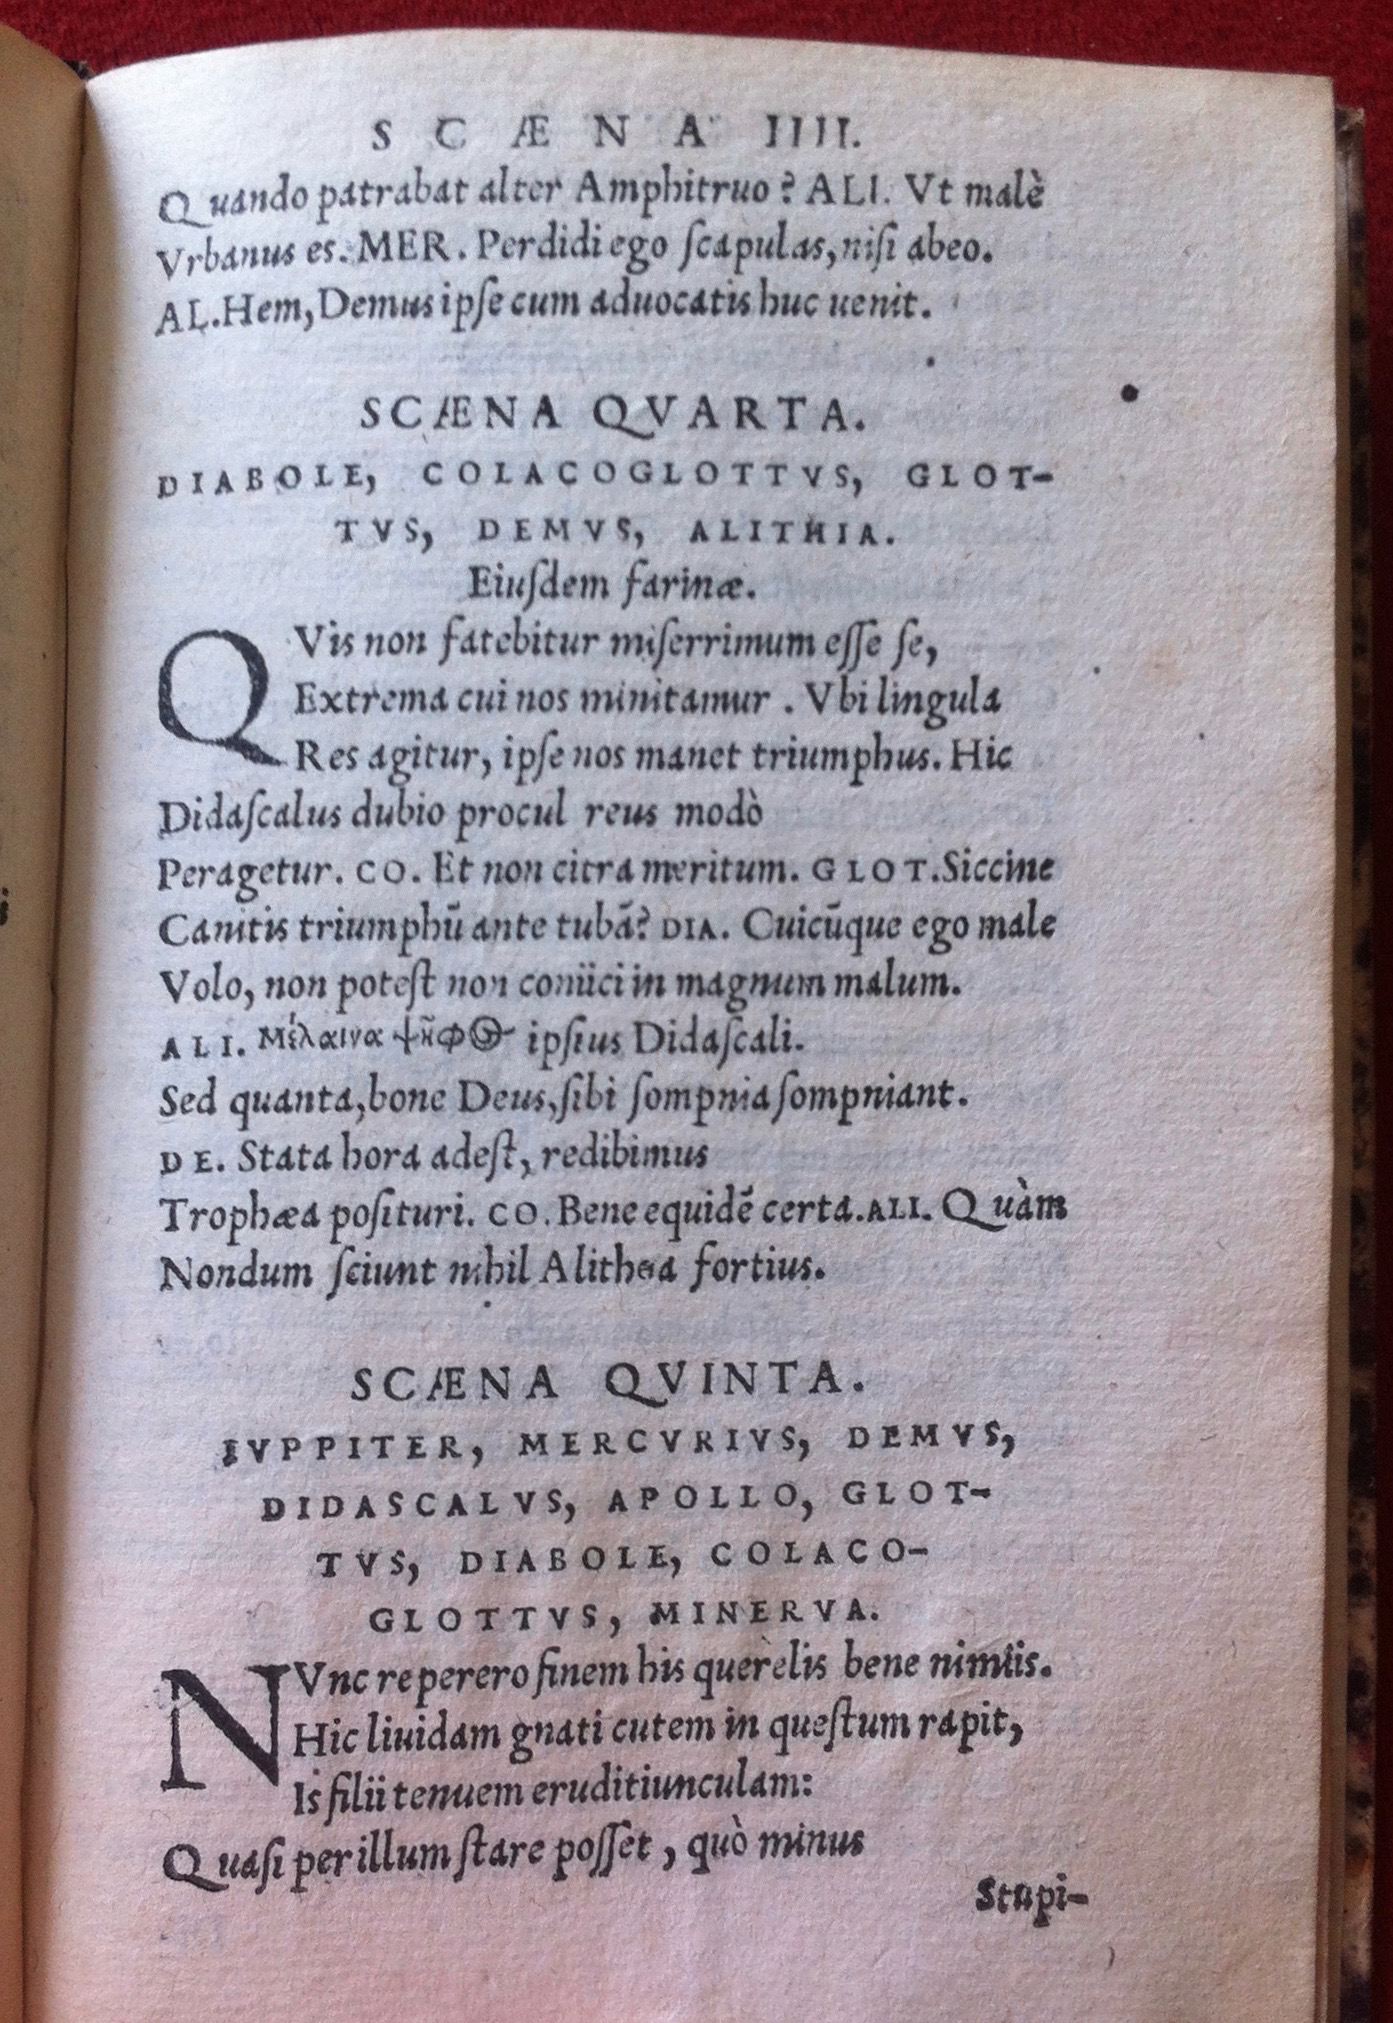 SCÆNA IIII.
Quando patrabat alter Amphitruo? ALI. Vt malè
Vrbanus es. MER. Perdidi ego ſcapulas, niſi abeo.
AL. Hem, Demus ipſe cum aduocatis huc uenit.
SCÆNA QVARTA.
DIABOLE, COLACOGLOTTVS, GLOT-
TVS, DEMVS, ALITHIA.
Eiuſdem farinæ.
QVis non fatebitur miſerrimum eſſe ſe,
Extrema cui nos minitamur. Vbi lingula
Res agitur, ipſe nos manet triumphus. Hic
Didaſcalus dubio procul reus modò
Peragetur. CO. Et non citra meritum. GLOT. Siccine
Canitis triumphū ante tubā? DIA. Cuicūque ego male
Volo, non poteſt non coniici in magnum malum.
ALI. Μέλαινα ψῆφος ipſius Didaſcali.
Sed quanta, bone Deus, ſibi ſompnia ſompniant.
DE. Stata hora adeſt, redibimus
Trophæa poſituri. CO. Bene equidē certa. ALI. Quàm
Nondum ſciunt nihil Alithea fortius.
SCÆNA QVINTA.
IVPPITER, MERCVRIVS, DEMVS,
DIDASCALVS, APOLLO, GLOT-
TVS, DIABOLE, COLACO-
GLOTTVS, MINERVA.
NVnc reperero finem his querelis bene nimiis.
Hic liuidam gnati cutem in queſtum rapit,
Is filii tenuem eruditiunculam:
Quaſi per illum ſtare poſſet, quò minus
Stupi-